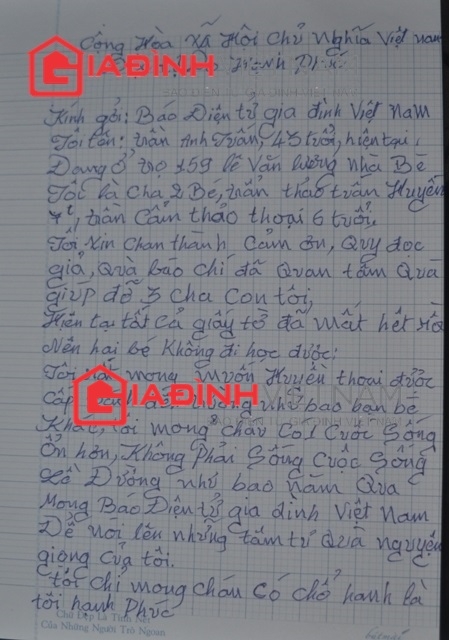 Cộng Hòa Xã Hội Chủ Nghĩa Việt Nam
GIAĐÌNH
Kính gởi: Báo Điện tử gia đình Việt Nam
Tôi tên: Trần Anh Tuấn, 43 tuổi, hiện tại
Đang ở trọ 159 lê Văn lương Nhà Bè
Tôi là cha 2 Bé, trần thảo trân Huyền
7t, trần Cẩm thảo thoại 6 tuổi,
Tôi Xin Chan thành Cảm ơn, Quý đọc
giả, Quà báo chí đã Quan tâm Quà
giúp đỡ 3 Cha Con tôi,
Hiện tại tất cả giấy tờ đã mất hết rồi
Nên hai bé Không đi học được;
Tôi rất mong muốn Huyền thoại được
GIAĐÌNH VIỆT NAM
như bao bạn bè
Khác, Tôi mong cháu Có 1 Cuộc Sống
Ổn hơn, Không Phải Sống Cuộc Sống
Lề Đường như bao năm Qua
Mong Báo Điện tử gia đình Việt Nam
Để nói lên những tâm tư Quà nguyện
giọng của tôi.
Tôi chỉ mong cháu Có chổ hanh là
tôi hạnh Phúc
Chữ Đẹp Là Tính Nết
Của Những Người Trò Ngoan